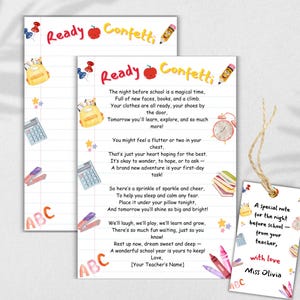 Ready Confetti
Ready Confetti
The night before school is a magical time,
Full of new faces, books, and a climb.
Your clothes are all ready, your shoes by
the door,
Tomorrow you'll learn, explore, and so much
more!
You might feel a flutter or two in your
chest,
That's just your heart hoping for the best.
It's okay to wonder, to hope, or to ask —
A brand new adventure is your first-day
task!
So here's a sprinkle of sparkle and cheer,
To help you sleep and calm any fear.
Place it under your pillow tonight,
And tomorrow you'll shine so big and bright!
We'll laugh, we'll play, we'll learn and grow,
There's so much fun waiting, just as you
know!
Rest up now, dream sweet and deep —
A wonderful school year is yours to keep!
Love,
[Your Teacher's Name]
ABC
ABC
A special note
for the night
before school —
from your
teacher,
with love
Miss Olivia